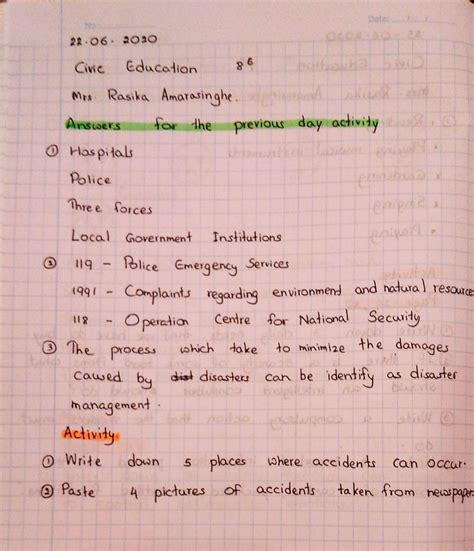 No:
Date:
22.06.2020
Civic Education 8⁶
Mrs. Rasika Amarasinghe.
Answers for the previous day activity
① Hospitals
Police
Three forces
Local Government Institutions
② 119 - Police Emergency Services
1991 - Complaints regarding environment and natural resources
118 - Operation Centre for National Security
③ The process which take to minimize the damages
caused by disasters can be identify as disaster
management.
Activity
① Write down 5 places where accidents can occur.
② Paste 4 pictures of accidents taken from newspaper